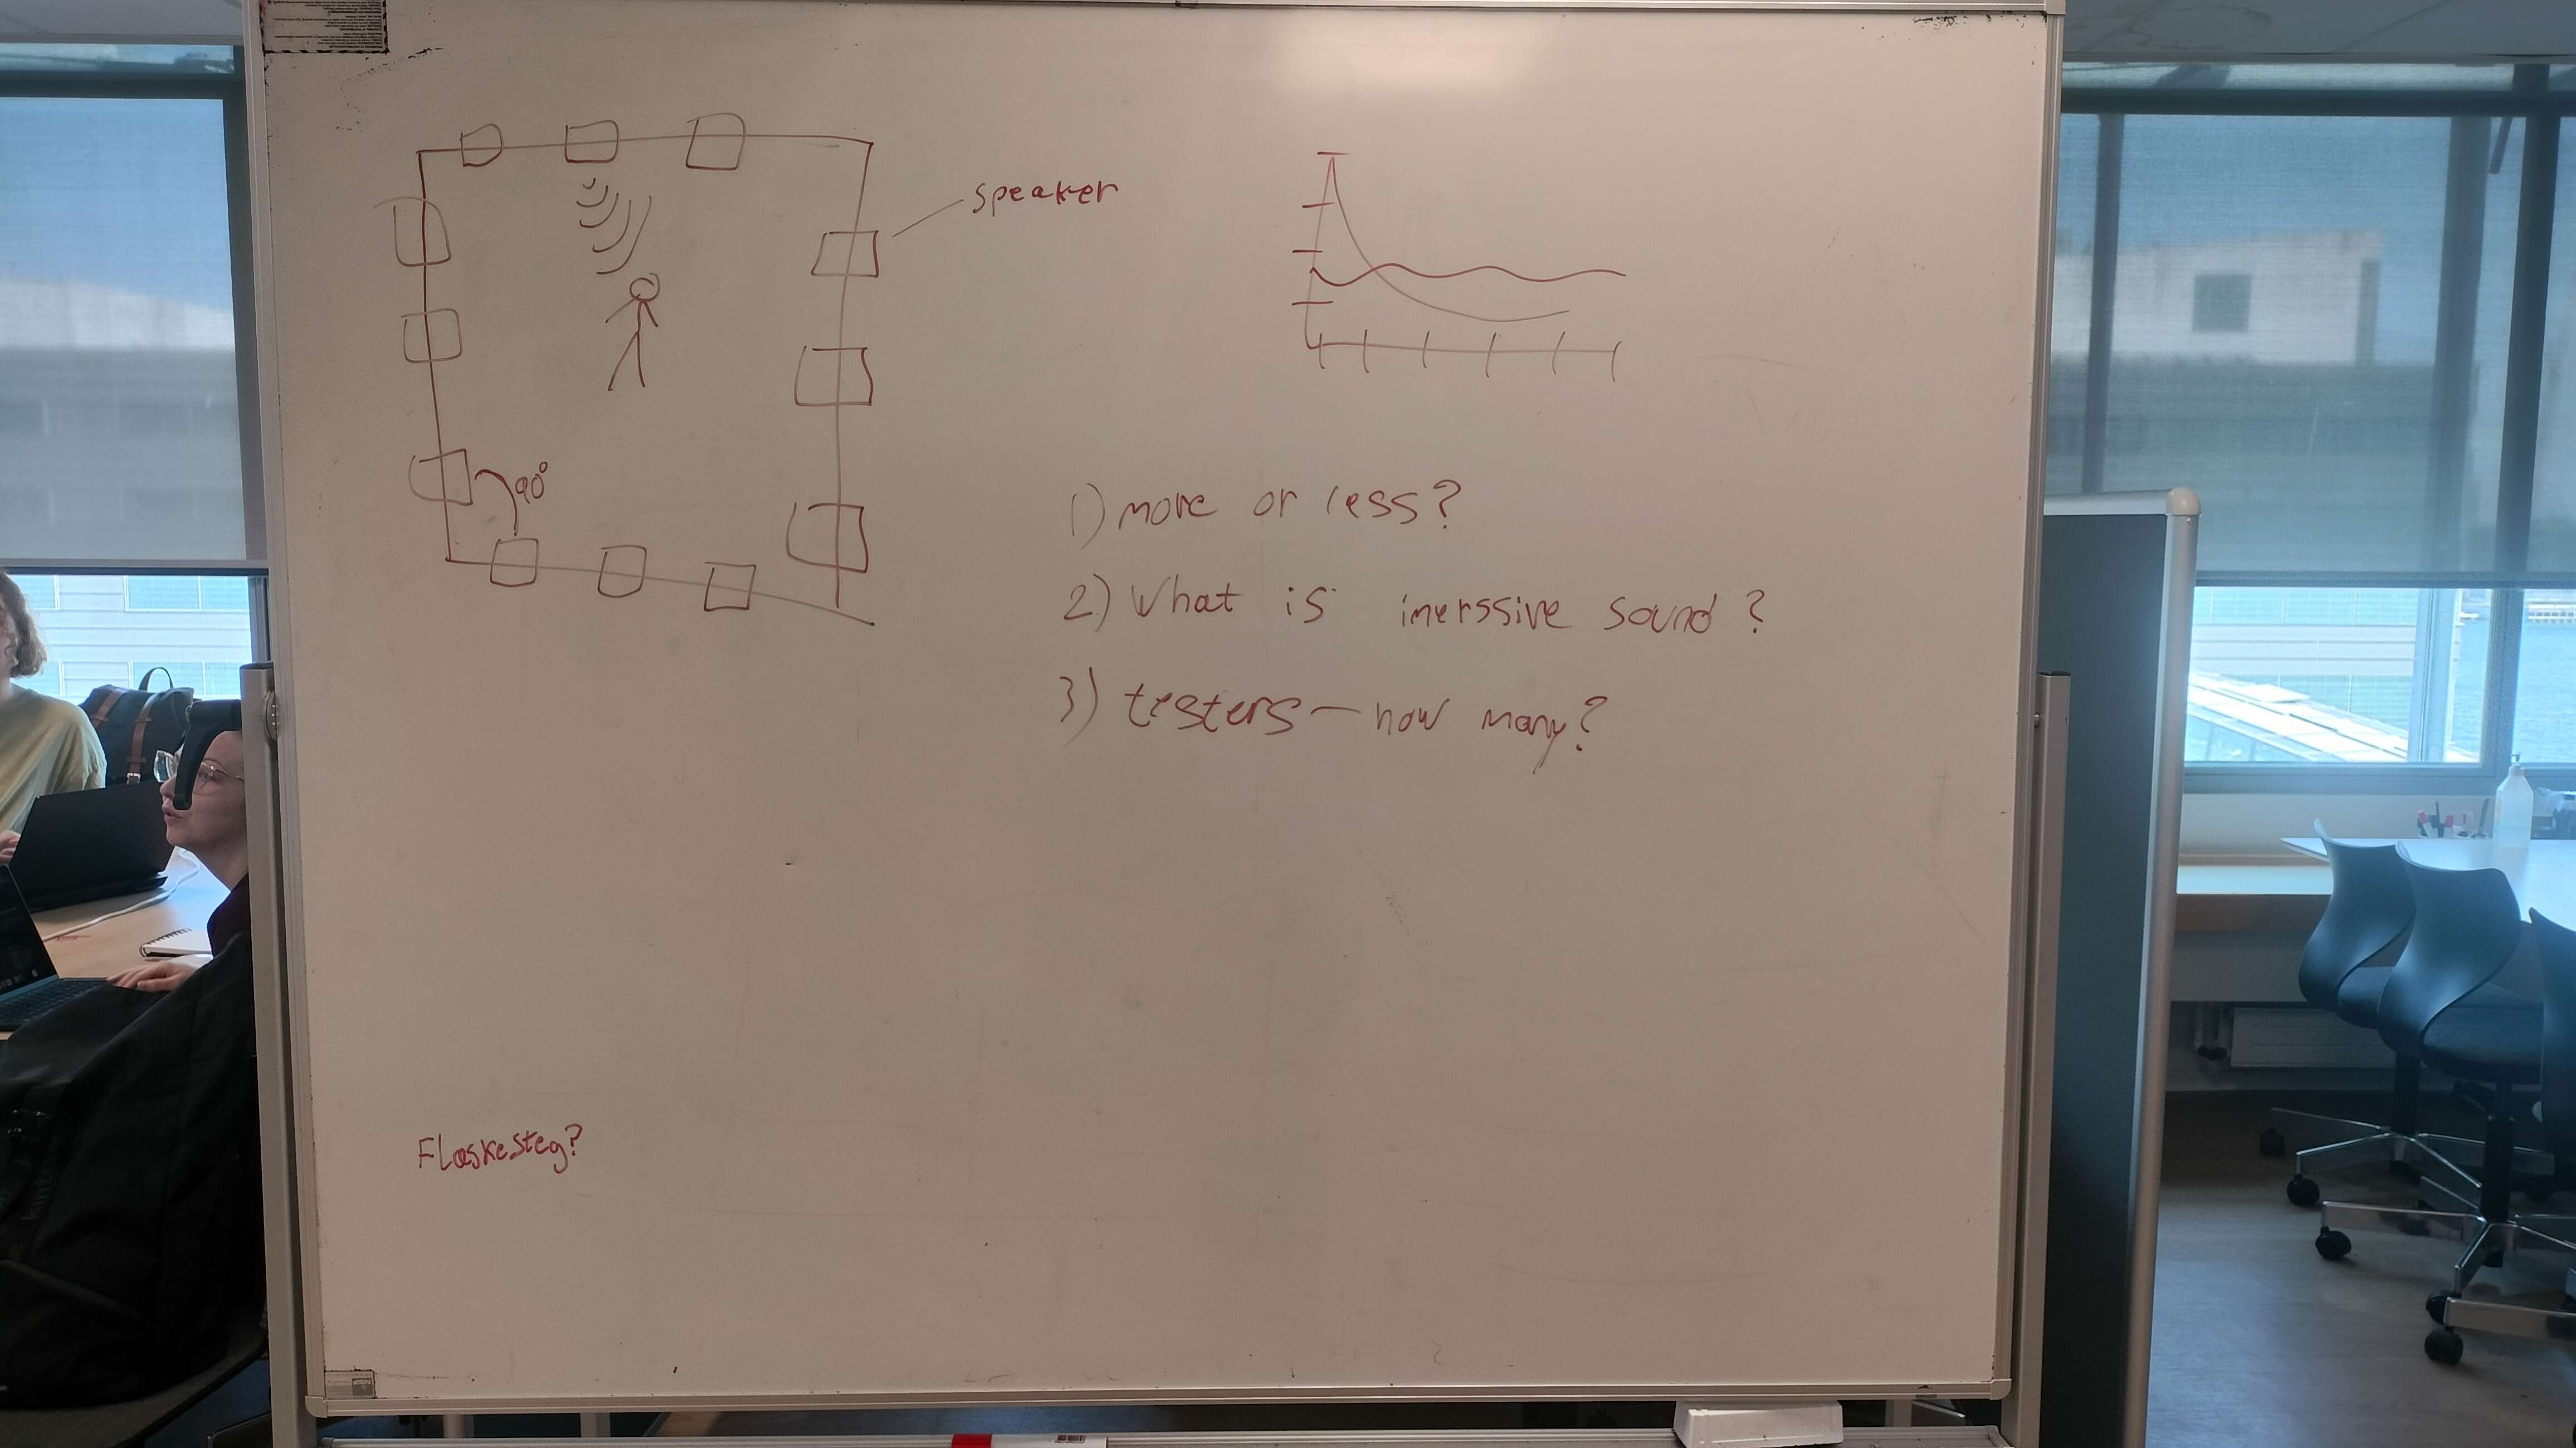 speaker
90°
1) more or less?
2) What is imerssive sound?
3) testers — how many?
Flæskesteg?